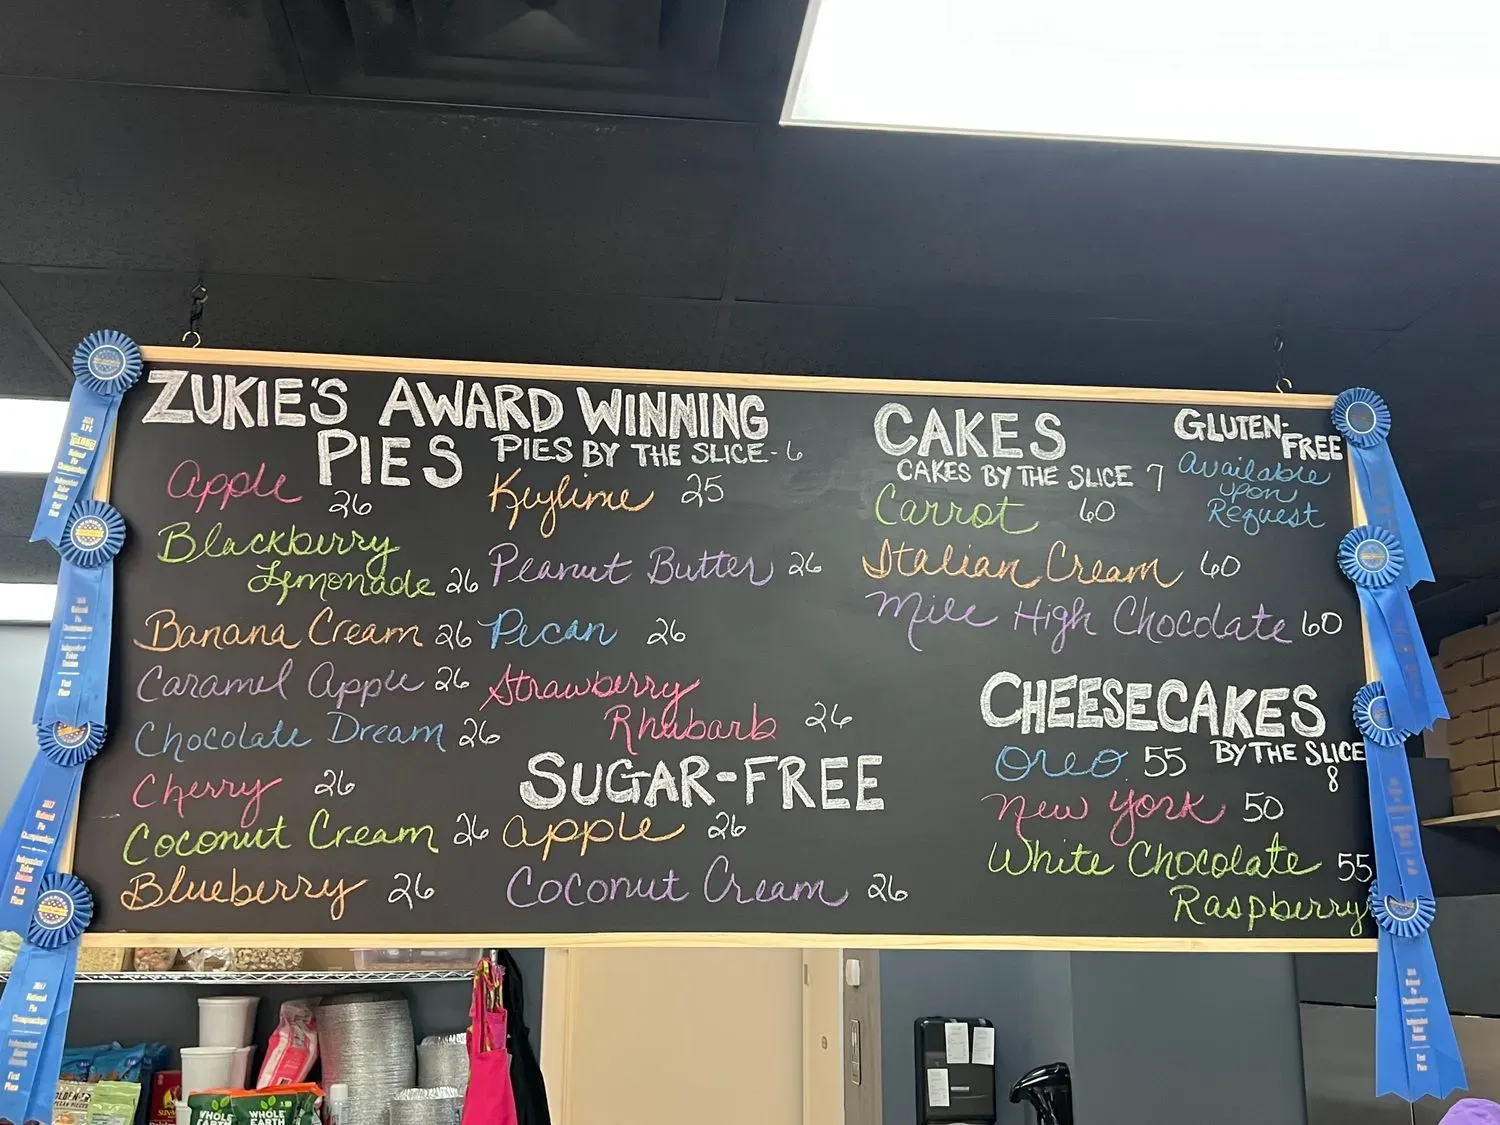 ZUKIE'S AWARD WINNING
PIES PIES BY THE SLICE - 6
Apple 26
Blackberry
Lemonade 26
Banana Cream 26
Caramel Apple 26
Chocolate Dream 26
Cherry 26
Coconut Cream 26
Blueberry 26
Keylime 25
Peanut Butter 26
Pecan 26
Strawberry
Rhubarb 26
SUGAR-FREE
Apple 26
Coconut Cream 26
CAKES
CAKES BY THE SLICE 7
Carrot 60
Italian Cream 60
Mile High Chocolate 60
GLUTEN-
FREE
Available
upon
Request
CHEESECAKES
BY THE SLICE
8
Oreo 55
New York 50
White Chocolate 55
Raspberry
National
Pie
Championships
Independent
Baker
Division
First
Place
2017
National
Pie
Championships
Independent
Baker
First
Place
WHOLE
EARTH
WHOLE
EARTH